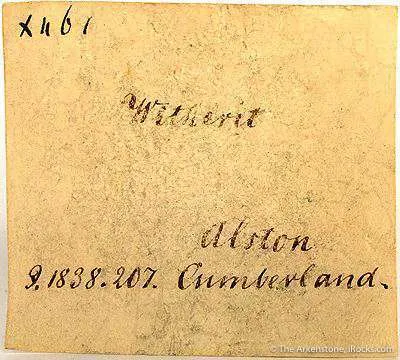 X461
Witherit
Alston
9.1838.207. Cumberland.
© The Arkenstone, iRocks.com